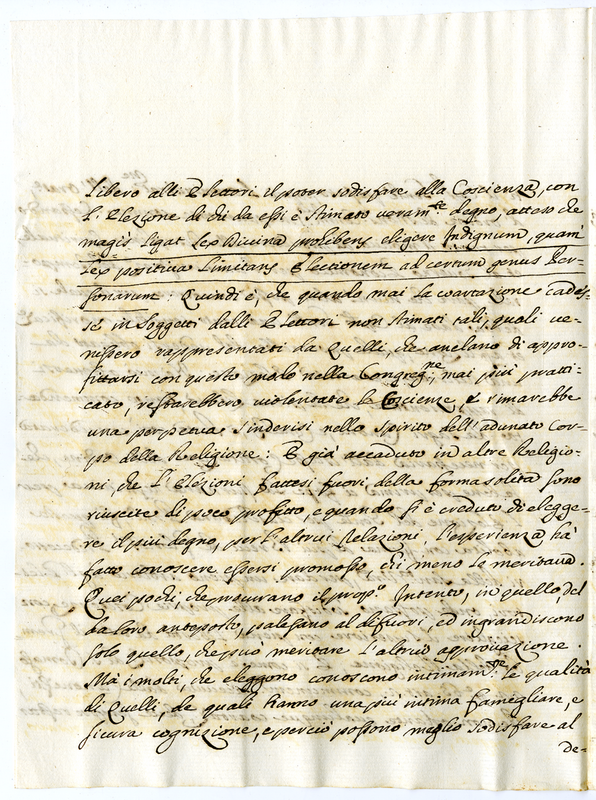 Libero alli Elettori il poter sodisfare alla Coscienza, con
l'Elezione di chi da essi è stimato veram.te degno, atteso che
magis ligat Lex Divina prohibens eligere Indignum, quam
Lex positiva Limitans Electionem ad certum genus Per-
sonarum: Quindi è, che quando mai la coartazione cades-
se in Soggetti dalli Elettori non stimati tali, quali ve-
nissero rappresentati da Quelli, che anelano di appro-
fittarsi con questo modo nella Congreg.ne, mai più pratti-
cato, restarebbero violentate le Coscienze, e rimarebbe
una perpetua Sinderisi nello Spirito dell'adunato Cor-
po della Religione: È già accaduto in altre Religio-
ni che l'Elezioni fattesi fuori della forma solita sono
riuscite di poco profitto, e quando si è creduto di elegge-
re il più degno, per l'altrui Relazioni, l'esperienza hà
fatto conoscere essersi promosso, chi meno le meritava.
Quei pochi, che procurano il prop.o Intento, in quello, del
da loro anteposto, palesano al difuori, ed ingrandiscono
solo quello, che può meritare l'altrui approvazione.
Ma i molti, che eleggono conoscono intimam.te le qualità
di Quelli, de quali hanno una più intima famigliare, e
sicura cognizione, e perciò possono meglio sodisfare al
de-